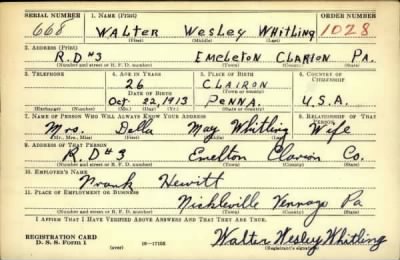 SERIAL NUMBER 1. NAME (Print) ORDER NUMBER
668 WALTER Wesley Whitling 1028
(First) (Middle) (Last)
2. ADDRESS (Print)
R.D #3 EMELETON CLARION PA.
(Number and street or R. F. D. number) (Town) (County) (State)
3. TELEPHONE 4. AGE IN YEARS 5. PLACE OF BIRTH 6. COUNTRY OF CITIZENSHIP
26 CLAIRON
DATE OF BIRTH (Town or county)
Oct 22, 1913 PENNA. U.S.A.
(Exchange) (Number) (Mo.) (Day) (Yr.) (State or country)
7. NAME OF PERSON WHO WILL ALWAYS KNOW YOUR ADDRESS 8. RELATIONSHIP OF THAT PERSON
Mrs. Della May Whitling Wife
(Mr., Mrs., Miss) (First) (Middle) (Last)
9. ADDRESS OF THAT PERSON
R. D #3 Emelton Clarion Co.
(Number and street or R. F. D. number) (Town) (County) (State)
10. EMPLOYER'S NAME
Frank Hewitt
11. PLACE OF EMPLOYMENT OR BUSINESS
Nickleville Venango Pa
(Number and street or R. F. D. number) (Town) (County) (State)
I AFFIRM THAT I HAVE VERIFIED ABOVE ANSWERS AND THAT THEY ARE TRUE.
REGISTRATION CARD
D. S. S. Form 1 (over) 16—17105 Walter Wesley Whitling
(Registrant's signature)